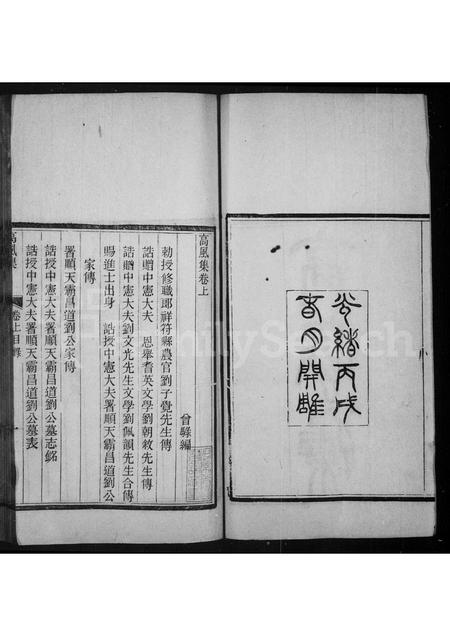 光緒丙戌
春月開雕
高風集卷上
曾騄編
勅授修職郎祥符縣農官劉子覺先生傳
誥贈中憲大夫　恩舉耆英文學劉朝敘先生傳
誥贈中憲大夫劉文光先生文學劉佩韻先生合傳
賜進士出身　誥授中憲大夫署順天霸昌道劉公
家傳
署順天霸昌道劉公家傳
誥授中憲大夫署順天霸昌道劉公墓志銘
誥授中憲大夫署順天霸昌道劉公墓表
高風集
卷上目錄
一
FamilySearch